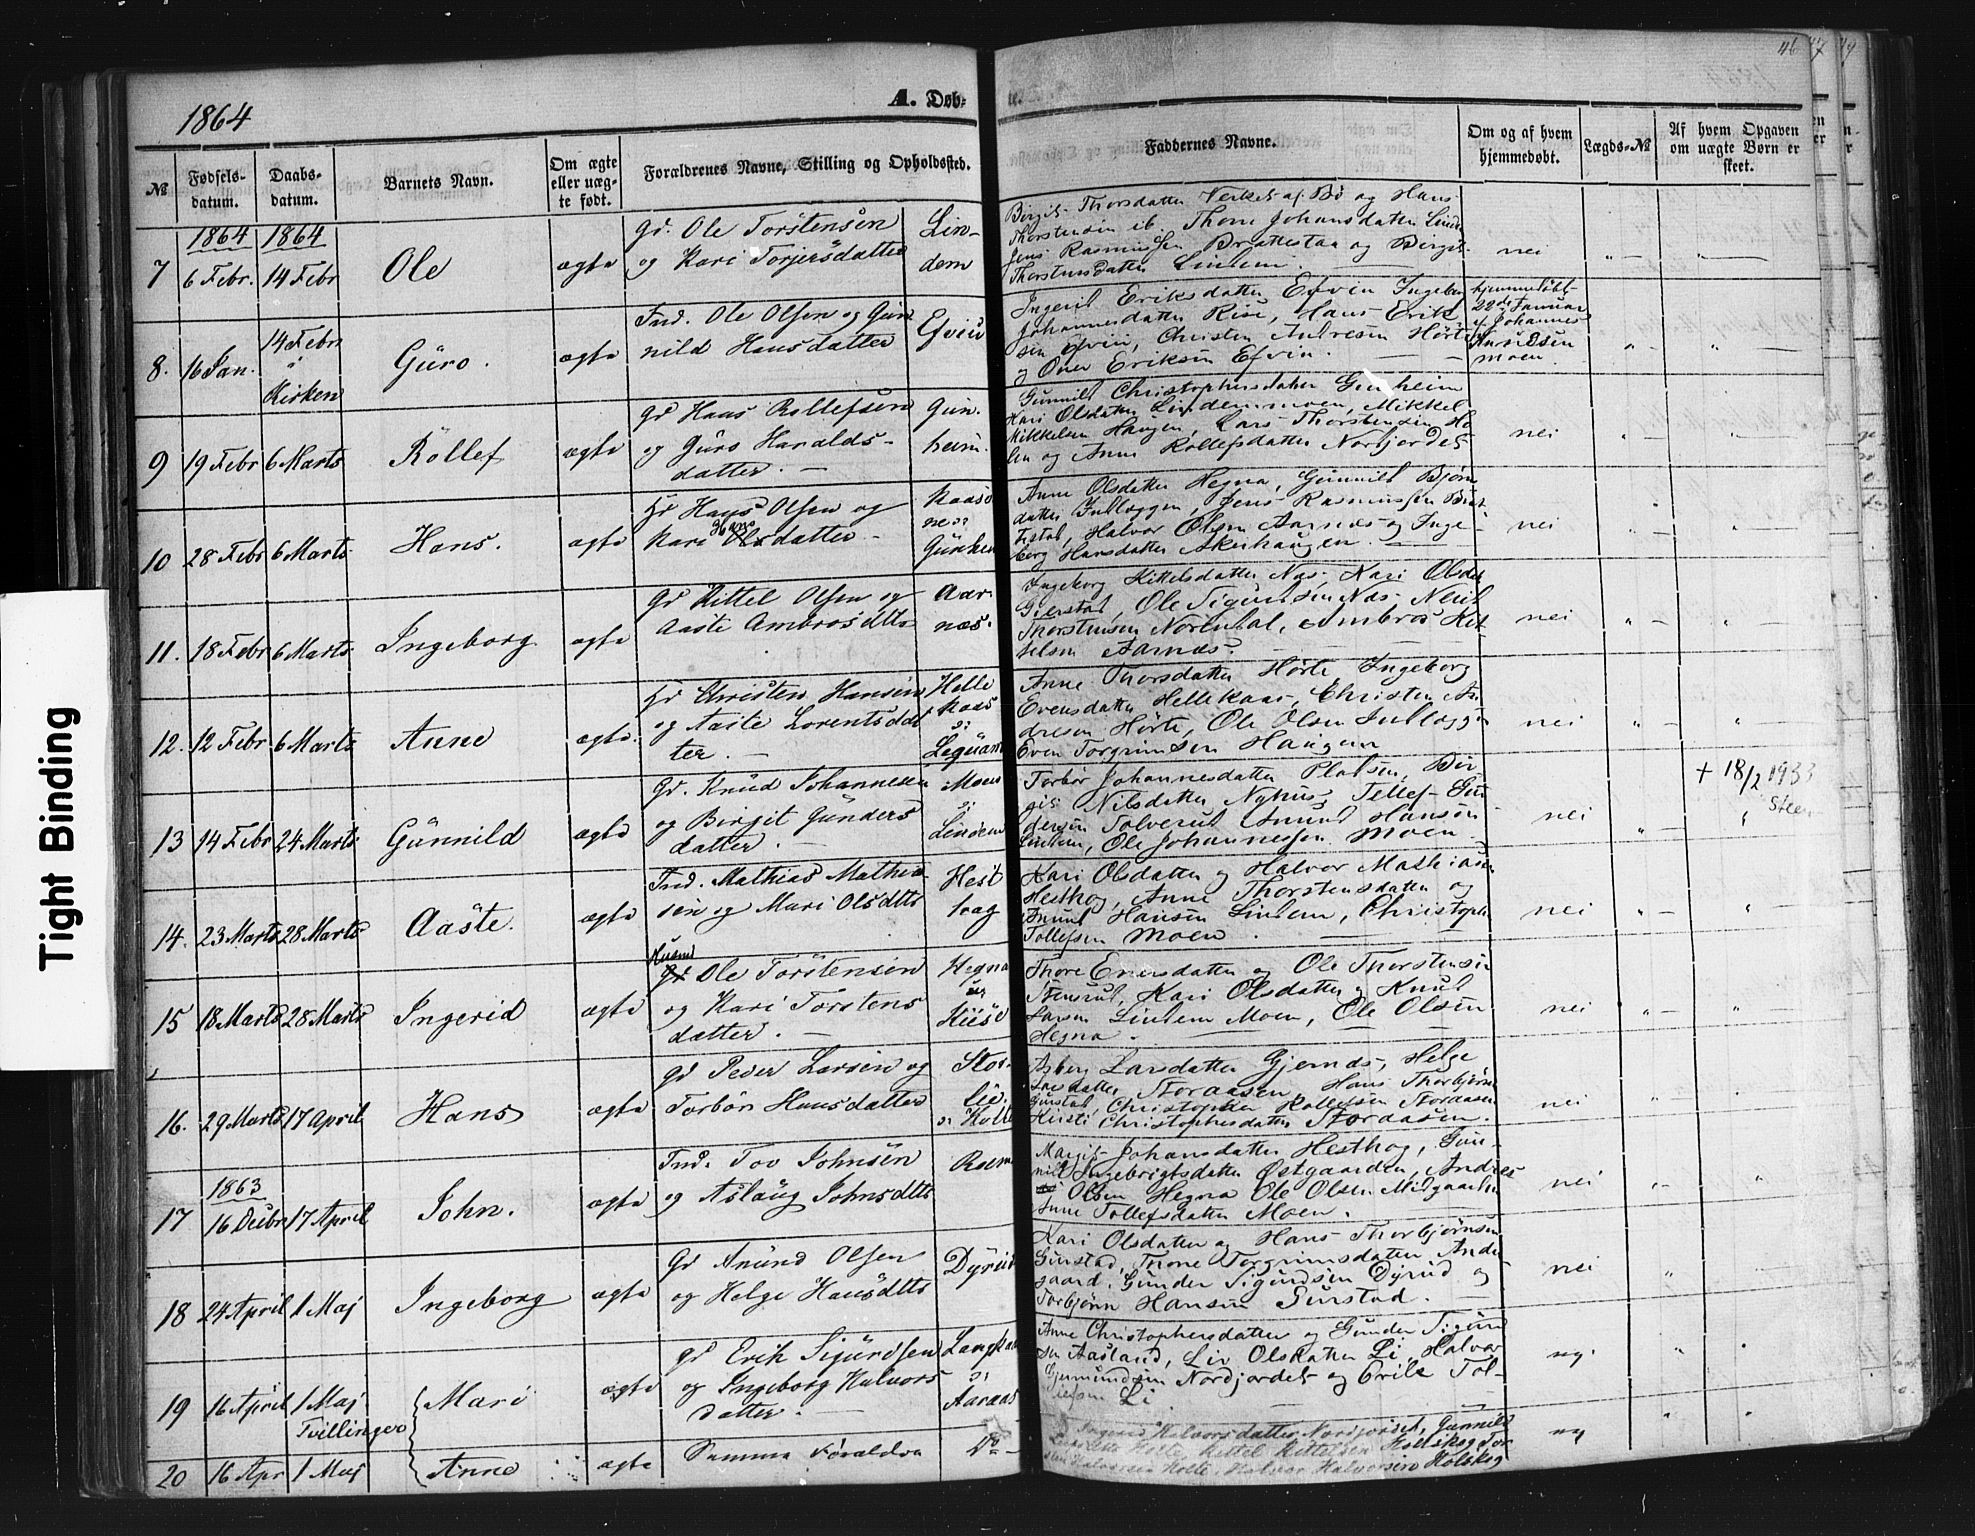 1864
A. Døb-
46
№
Fødsels-
datum.
Daabs-
datum.
Barnets Navn.
Om ægte
eller uæg-
te født.
Forældrenes Navne, Stilling og Opholdssted.
Faddernes Navne.
Om og af hvem
hjemmedøbt.
Lægds-№
Af hvem Opgaven
om uægte Børn er
skeet.
1864 1864
7 6 Febr. 14 Febr Ole ægte
Gd. Ole Torstensen
og Kari Torjersdatter
Lin-
dem
Birgit Thorsdatter Verket af Bø og Hans
Thorstensen ib. Thone Johansdatter
Jens Rasmussen Brattestaa og Bergit
Thorstensdatter Lindem.
nei
8. 16 Jan. 14 Febr
i
Kirken
Güro. ægte
Ind. Ole Olsen og Gün
nild Hansdatter
Efvin
Ingerid Eriksdatter Efvin Ingebor
Johannesdatter Riise, Hans Erik
sen Efvin, Christen Andresen Hörte
og Over Eriksen Efvin.
hjemmedøbt
22de Januar
af Johannes
Moen
9 19 Febr 6 Marts Röllef ægte
Gd Hans Rollefsen
og Güro Haralds-
datter.
Gün.
heim.
Gunnild Christophersdatter Gunheim
Kari Olsdatter Lindemmoen, Mikkel
Mikkelsen Haugen, Lars Thorstensen Ho
len og Anne Rollefsdatter Norjordet
nei
10 28 Febr 6 Marts Hans. ægte
Gd Hans Olsen og
Kari Hans datter
Kaasa
Günhei
Anne Olsdatter Hegna, Gunnild Bjørn
datter Indlæggen, Jens Rasmussen Brat
testad, Halvor Olsen Aarnæs og Inge-
borg Hansdatter Akerhaugen.
nei
11. 18 Febr 6 Marts Ingeborg ægte
Gd Kittel Olsen og
Aaste Ambrosdttr
Aar-
næs.
Ingeborg Kittelsdatter Næs, Kari Olsdtr
Gierstad, Ole Sigurdsen Næs Neril
Thorstensen Nordndal, Ambros Kit-
telsen Aarnæs.
nei
12. 12 Febr 6 Marts Anne ægte.
Gd Christen Hansen
og Aaste Lorentsdat
ter.
Helle
kaas
Anne Thorsdatter Hörte, Ingeborg
Evensdatter Hellekaas, Christen An
dresen Hörte, Ole Olsen Indlægge
Even Torgrimsen Haugen
nei
13 14 Febr 24 Marts Günnild ægte
Gd. Knüd Johannesen
og Birgit Gunders
datter.
Moen
Lindem
Torbor Johannesdatter Pladsen, Bir
git Nilsdatter Nyhus, Tellef Gun
dersen Tolverud Amund Hansen
Lindem, Ole Johannesen Moen
nei
+ 18/2 1933
Steen
14. 23 Marts 28 Marts Aaste. ægte
Ind. Mathias Mathia
sen og Mari Olsdttr
Hest
haag
Kari Olsdatter og Halvor Mathiasen
Hesthog, Anne Thorstensdatter og
Amund Hansen Lindem, Christoph
Tollefsen Moen
nei
15 18 Marts 28 Marts Ingerid ægte
Husmd
Ole Torstensen
og Kari Torstens
datter.
Hegna
Thore Eversdatter og Ole Thorstensen
Stensrud, Kari Olsdatter og Knud
Larsen Lindem Moen, Ole Olsen
Hegna.
nei
16. 29 Marts 17 April Hans ægte
Gd Peder Larsen og
Torbör Hansdatter
Stor-
lie.
Holte
Asberg Larsdatter Gjernæs, Helge
Larsdatter Storaasen, Hans Thorbjørn
Gurstad, Christopher Rollefsen Storaasen
Kirsti Christophersdatter Storaasen.
nei
1863
17 16 Decbr 17 April John. ægte
Ind. Tov Johnsen
og Aslaug Johnsdttr
Margit Johansdatter Hesthog, Gun-
nild Ingebrigtsdatter Østgaarden, Andres
Olsen Hegna Ole Olsen Midgaarden
Anne Tollefsdatter Moen.
nei
18 24 April 1 Maj Ingeborg ægte
Gd Amünd Olsen
og Helge Hansdttr
Dyrud
Kari Olsdatter og Hans Thorbjørnsen
Gurstad, Thone Torgrimsdatter Ande
gaard, Gunder Sigurdsen Dyrud og
Torbjørn Hansen Gurstad.
nei
19 16 April 1 Maj Mari ægte
Tvillinger
Gd Erik Sigurdsen
og Ingeborg Halvors
datter.
Langkaas
Aaraas
Anne Christophersdatter og Gunder Sigurd
sen Aasland, Liv Olsdatter Li, Halvor
Gjermundsen Nordjordet og Erik Tol-
lefsen Li
nej.
20 16 Apr 1 Maj Anne ægte
Samma Foraldra
Do
Ingerid Halvorsdatter Nordjordet, Gunnild
Holte, Kittel Kittelsen Holtskog Tor
sten Halvorsen Holte, Halvor Halvorsen Holskog
nej
Tight Binding